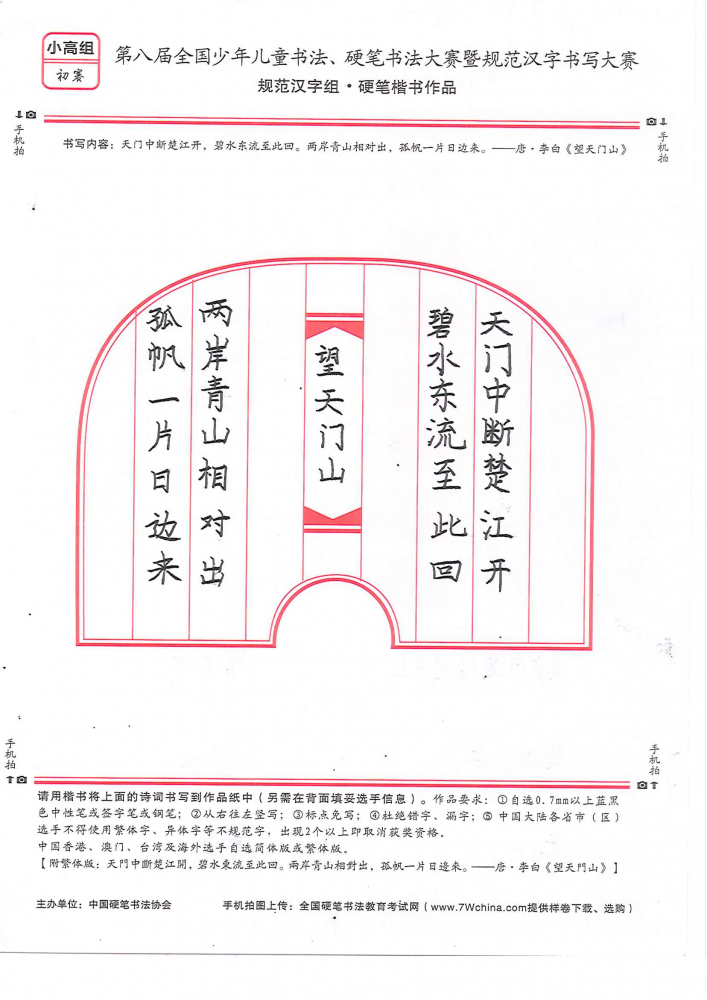 小高组
初赛
第八届全国少年儿童书法、硬笔书法大赛暨规范汉字书写大赛
规范汉字组·硬笔楷书作品
手机拍
手机拍
书写内容：天门中断楚江开，碧水东流至此回。两岸青山相对出，孤帆一片日边来。——唐·李白《望天门山》
天门中断楚江开
碧水东流至此回
望天门山
两岸青山相对出
孤帆一片日边来
手机拍
手机拍
请用楷书将上面的诗词书写到作品纸中（另需在背面填妥选手信息）。作品要求：①自选0.7mm以上蓝黑
色中性笔或签字笔或钢笔；②从右往左竖写；③标点免写；④杜绝错字、漏字；⑤中国大陆各省市（区）
选手不得使用繁体字、异体字等不规范字，出现2个以上即取消获奖资格。
中国香港、澳门、台湾及海外选手自选简体版或繁体版。
【附繁体版：天門中斷楚江開，碧水東流至此回。兩岸青山相對出，孤帆一片日邊來。——唐·李白《望天門山》】
主办单位：中国硬笔书法协会
手机拍图上传：全国硬笔书法教育考试网（www.7Wchina.com提供样卷下载、选购）